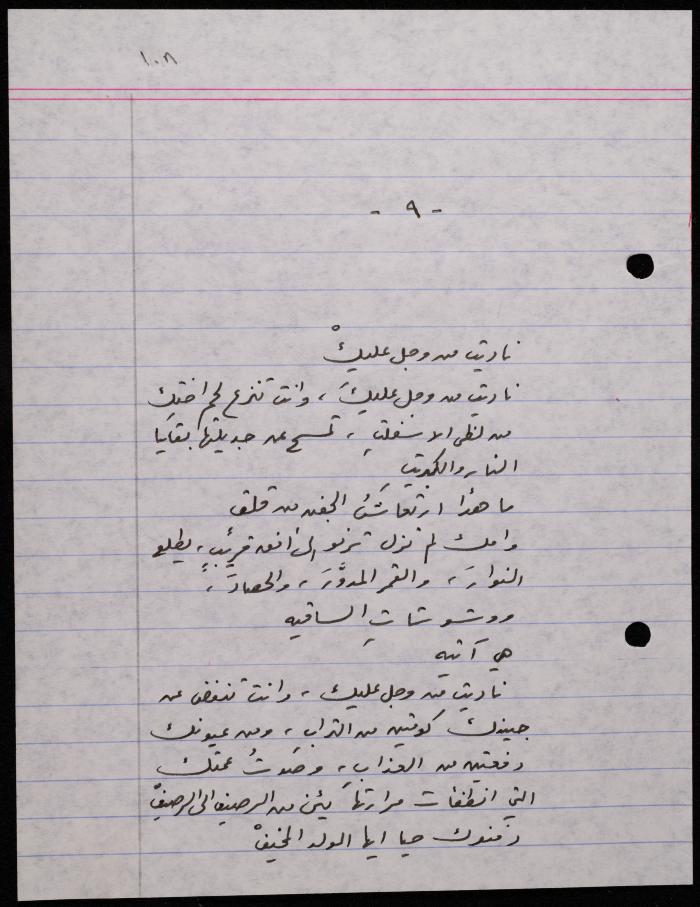 ١٠٨
- ٩ -
ناديتُ من وجلٍ عليكْ
ناديتُ من وجلٍ عليكَ، وانتَ تنزع لحم اختك
من لظى الاسفلتِ، تمسح عن جديلتها بقايا
النار والكبريتِ
ما هذا ارتعاشُ الجفن من قلقٍ
وامك لم تزل ترنو الى افق قريبٍ، يطلع
النوارَ، والقمر المدوَّرَ، والحصادَ،
ووشوشاتِ الساقيه
هي آتيه
ناديت من وجل عليك، وانت تنفض عن
جبينك كومتين من التراب، ومن عيونك
دفعتين من العذاب، وصوتُ عمتك
التي انطفأت مرارتها يئن من الرصيف الى الرصيفْ
دفنوك حيا ايها الولد المخيفْ